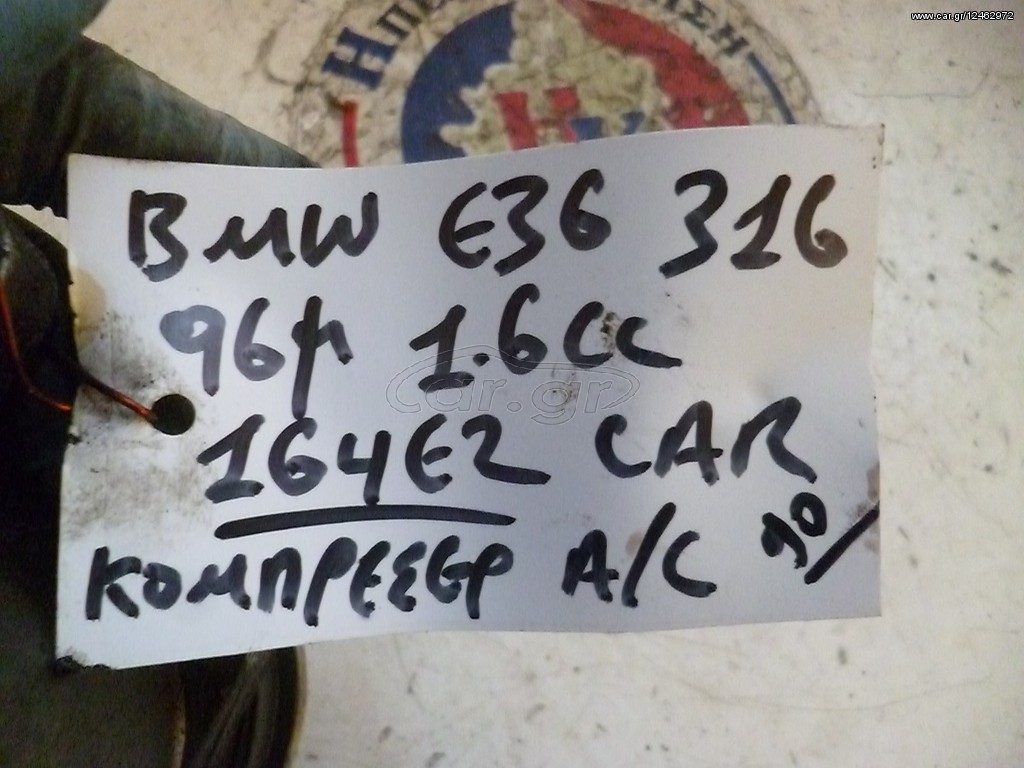 www.car.gr/12462972
BMW E36 316
96μ 1.6cc
164E2 CAR
90/
ΚΟΜΠΡΕΣΕΡ A/C
car.gr